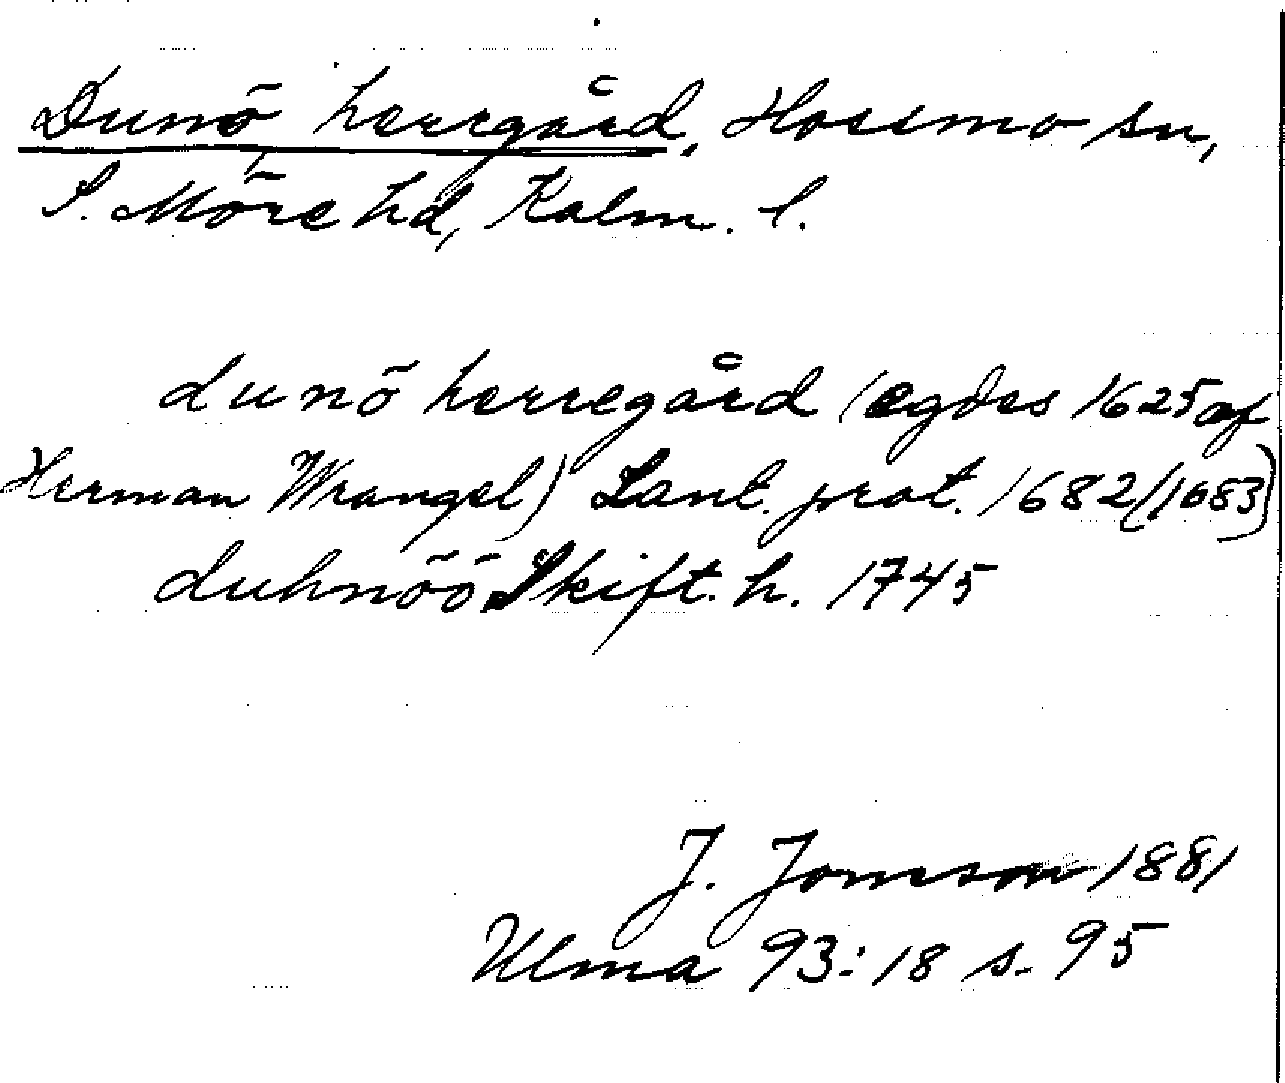 Dunö herrgård, Hossmo sn,
S. Möre hd, Kalm. l.
dunö herregård (egdes 1625 af
Herman Wrangel) Lant. prot. 1682(/1683)
duhnöö Skift. h. 1745
J. Jonsson 1881
Ulma 93:18 s. 95